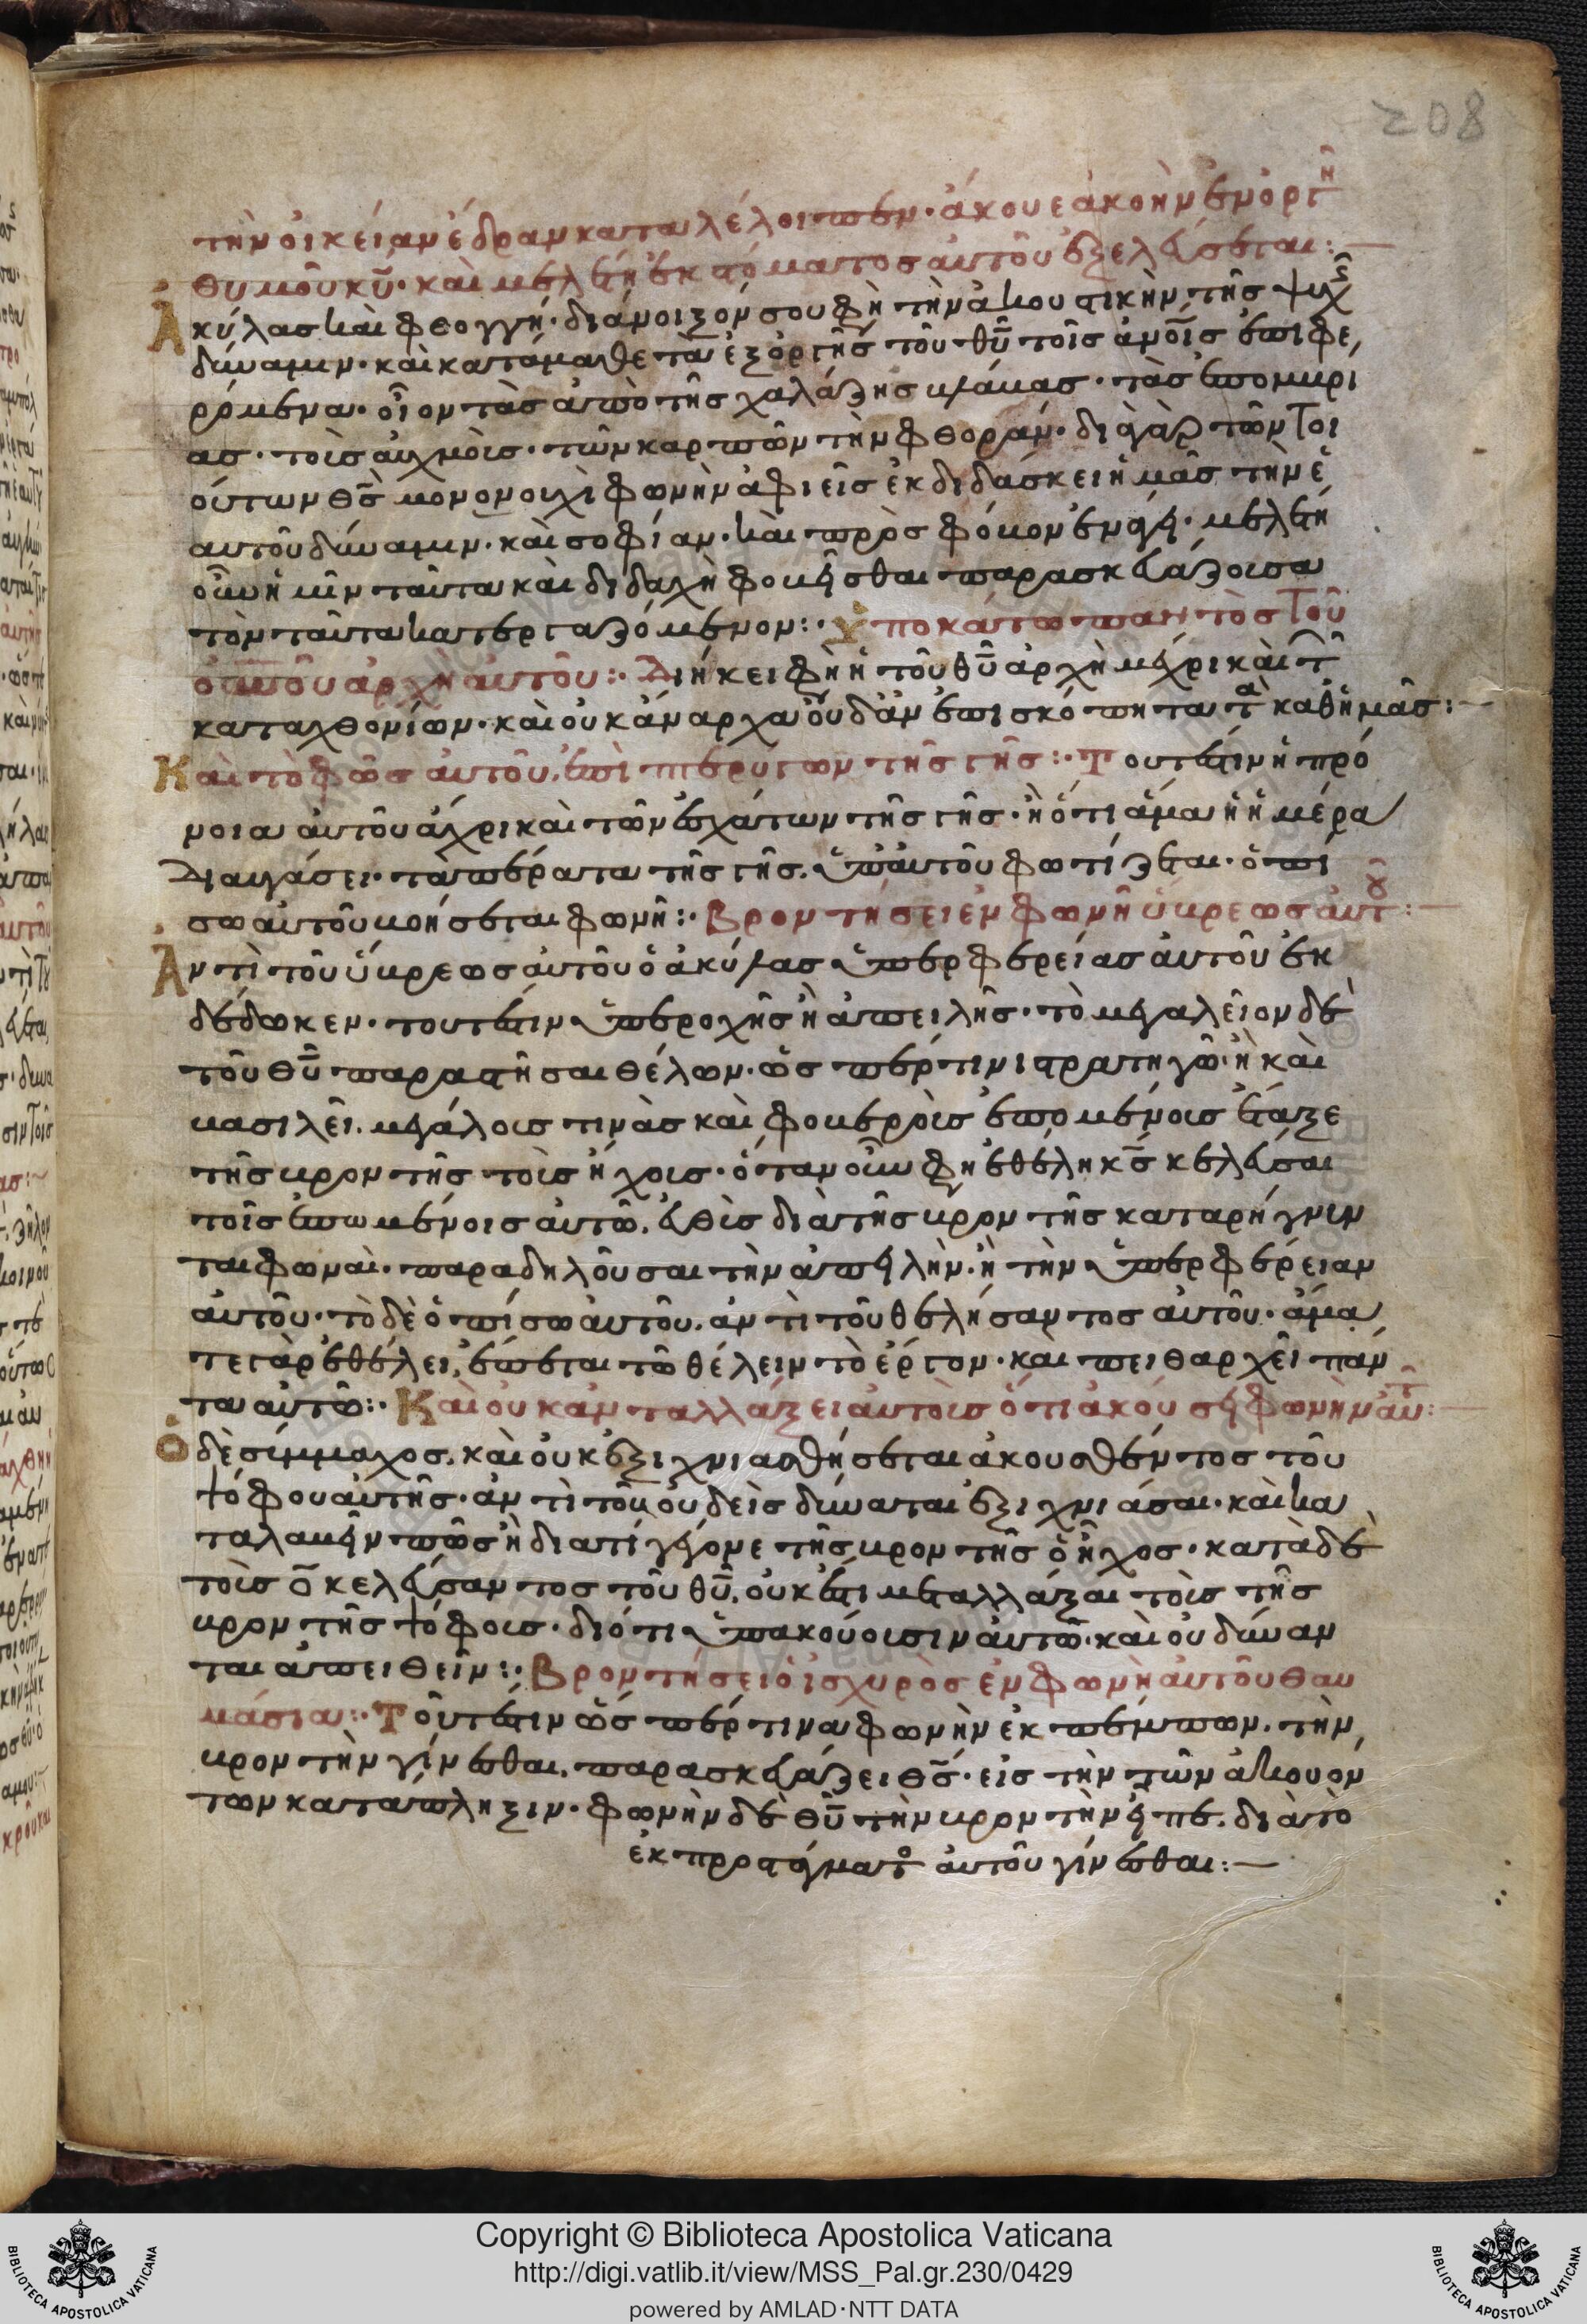 208
τὴν οἰκείαν ἕδραν καταλέλοιπεν· ἄκουε ἀκοὴν ἐν ὀργῆ
θυμοῦ κυ̅· καὶ μελέτη ἐκ στόματος αὐτοῦ ἐξελεύσεται:—
Ἀκύλας καὶ φθογγή· διάνοιξόν σου φὴ τὴν ἀκουστικὴν τῆς ψυχῆς
δύναμιν· καὶ κατάμαθε τὰ ἐξ ὀργῆς τοῦ θυ̅ τοῖς ἀνοις ἐπιφε
ρόμενα· οἷον τὰς ἀπὸ τῆς χαλάζης βλάβας· τὰς ἐπομβρι
ας· τοὺς αὐχμοὺς· τῶν καρπῶν τὴν φθοράν· διὰ γὰρ τῶν τοι
ούτων θς̅ μονονουχὶ φωνὴν ἀφιεὶς ἐκδιδάσκει ἡμᾶς τὴν ἑ
αυτοῦ δύναμιν· καὶ σοφίαν· καὶ πρὸς φόβον ἐνάγει· μελέτη
οὖν ἡμῖν ταῦτα καὶ διδαχὴ φοβεῖσθαι παρασκευάζουσα
τὸν ταῦτα κατεργαζόμενον:· Ὑποκάτω παντὸς τοῦ
οὐνοῦ ἀρχὴ αὐτοῦ:· Διήκει φὴ ἡ τοῦ θυ̅ ἀρχὴ μέχρι καὶ τῶν
καταχθονίων· καὶ οὐκ ἄναρχα οὐδ' ἀνεπισκόπητα τὰ καθ' ἡμᾶς:—
Καὶ τὸ φῶς αὐτοῦ ἐπὶ πτερύγων τῆς γῆς:· Τουτέστιν ἡ πρό
νοια αὐτοῦ ἄχρι καὶ τῶν ἐσχάτων τῆς γῆς· ἢ ὅτι ἅμα ἡ ἡμέρα
διαυγάσει· τὰ πέρατα τῆς γῆς· ὑπ' αὐτοῦ φωτίζεται· ὀπί
σω αὐτοῦ βοήσεται φωνῆ:· Βροντήσει ἐν φωνῆ ὕβρεως αὐτοῦ:—
Ἀντὶ τοῦ ὕβρεως αὐτοῦ ὁ ἀκύλας ὑπερφερείας αὐτοῦ ἐκ
δέδωκεν· τουτέστιν ὑπεροχῆς ἢ ἀπειλῆς· τὸ μεγαλεῖον δὲ
τοῦ θυ̅ παραστῆσαι θέλων· ὥς περ τινι στρατηγῶ· ἢ καὶ
βασιλεῖ· μεγάλοις τινὰς καὶ φοβεροὺς ἑπομένους ἔταξε
τῆς βροντῆς τοὺς ἤχους· ὅταν οὖν φὴ ἐθέλη κς̅ κελεῦσαι
τοῖς ἑπωμένοις αὐτῶ· εὐθὺς διὰ τῆς βροντῆς καταρήγνυν
ται φωναὶ· παραδηλοῦσαι τὴν ἀπειλὴν· ἢ τὴν ὑπερφέρειαν
αὐτοῦ· τὸ δὲ ὀπίσω αὐτοῦ· ἀντὶ τοῦ θελήσαντος αὐτοῦ· ἅμα
τε γὰρ ἐθέλει, ἕπεται τῶ θέλειν τὸ ἔργον· και πειθαρχεῖ πάν
τα αὐτῶ:· Καὶ οὐκ ἀνταλλάξει αὐτοὺς ὅτι ἀκούσει φωνὴν αὐτοῦ:—
Ὁ δὲ σύμμαχος· καὶ οὐκ ἐξιχνιασθήσεται ἀκουσθέντος τοῦ
ψόφου αὐτῆς· ἀντὶ τοῦ οὐδεὶς δύναται ἐξιχνιάσαι· καὶ κα
ταλαβεῖν πῶς ἢ διατί γέγονε τῆς βροντῆς ὁ ἦχος· κατὰ δὲ
τοὺς ο̅ κελεύσαντος τοῦ θυ̅· οὐκ ἔστι μεταλλάξαι τοὺς τῆς
βροντῆς ψόφους· διότι ὑπακούουσιν αὐτῶ· καὶ οὐ δύναν
ται ἀπειθεῖν:· Βροντήσει ὁ ἰσχυρὸς ἐν φωνὴ αὐτοῦ θαυ
μάσια:· Τοῦτέστιν ὥς περ τινα φωνὴν ἐκπέμπων· τὴν
βροντὴν γίνεσθαι· παρασκευάζει θς̅· εἰς τὴν τῶν ἀκουόν
των κατάπληξιν· φωνὴν δὲ θυ̅ τὴν βροντὴν εἶπε· διὰ τὸ
ἐκ προστάγματος αὐτοῦ γίνεσθαι:—
Copyright © Biblioteca Apostolica Vaticana
http://digi.vatlib.it/view/MSS_Pal.gr.230/0429
powered by AMLAD·NTT DATA
BIBLIOTECA APOSTOLICA VATICANA
BIBLIOTECA APOSTOLICA VATICANA